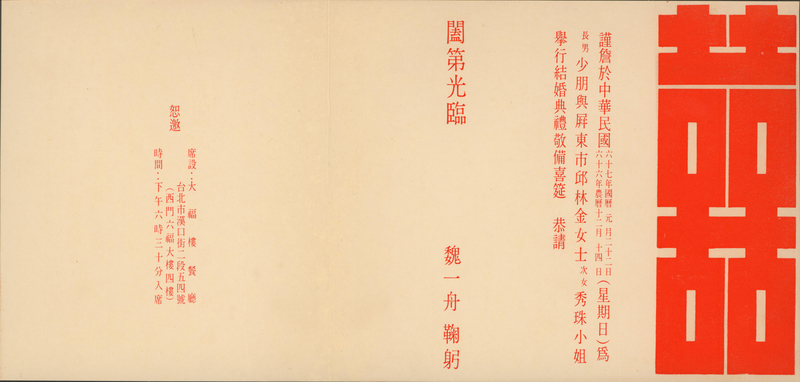 囍
謹詹於中華民國六十七年國曆元月二十二日六十六年農曆十二月十四日(星期日)爲
長男少朋與屏東市邱林金女士次女秀珠小姐
舉行結婚典禮敬備喜筵 恭請
闔第光臨
魏一舟 鞠躬
恕邀
席設:大福樓餐廳
台北市漢口街二段五四號
(西門六福大樓四樓)
時間:下午六時三十分入席